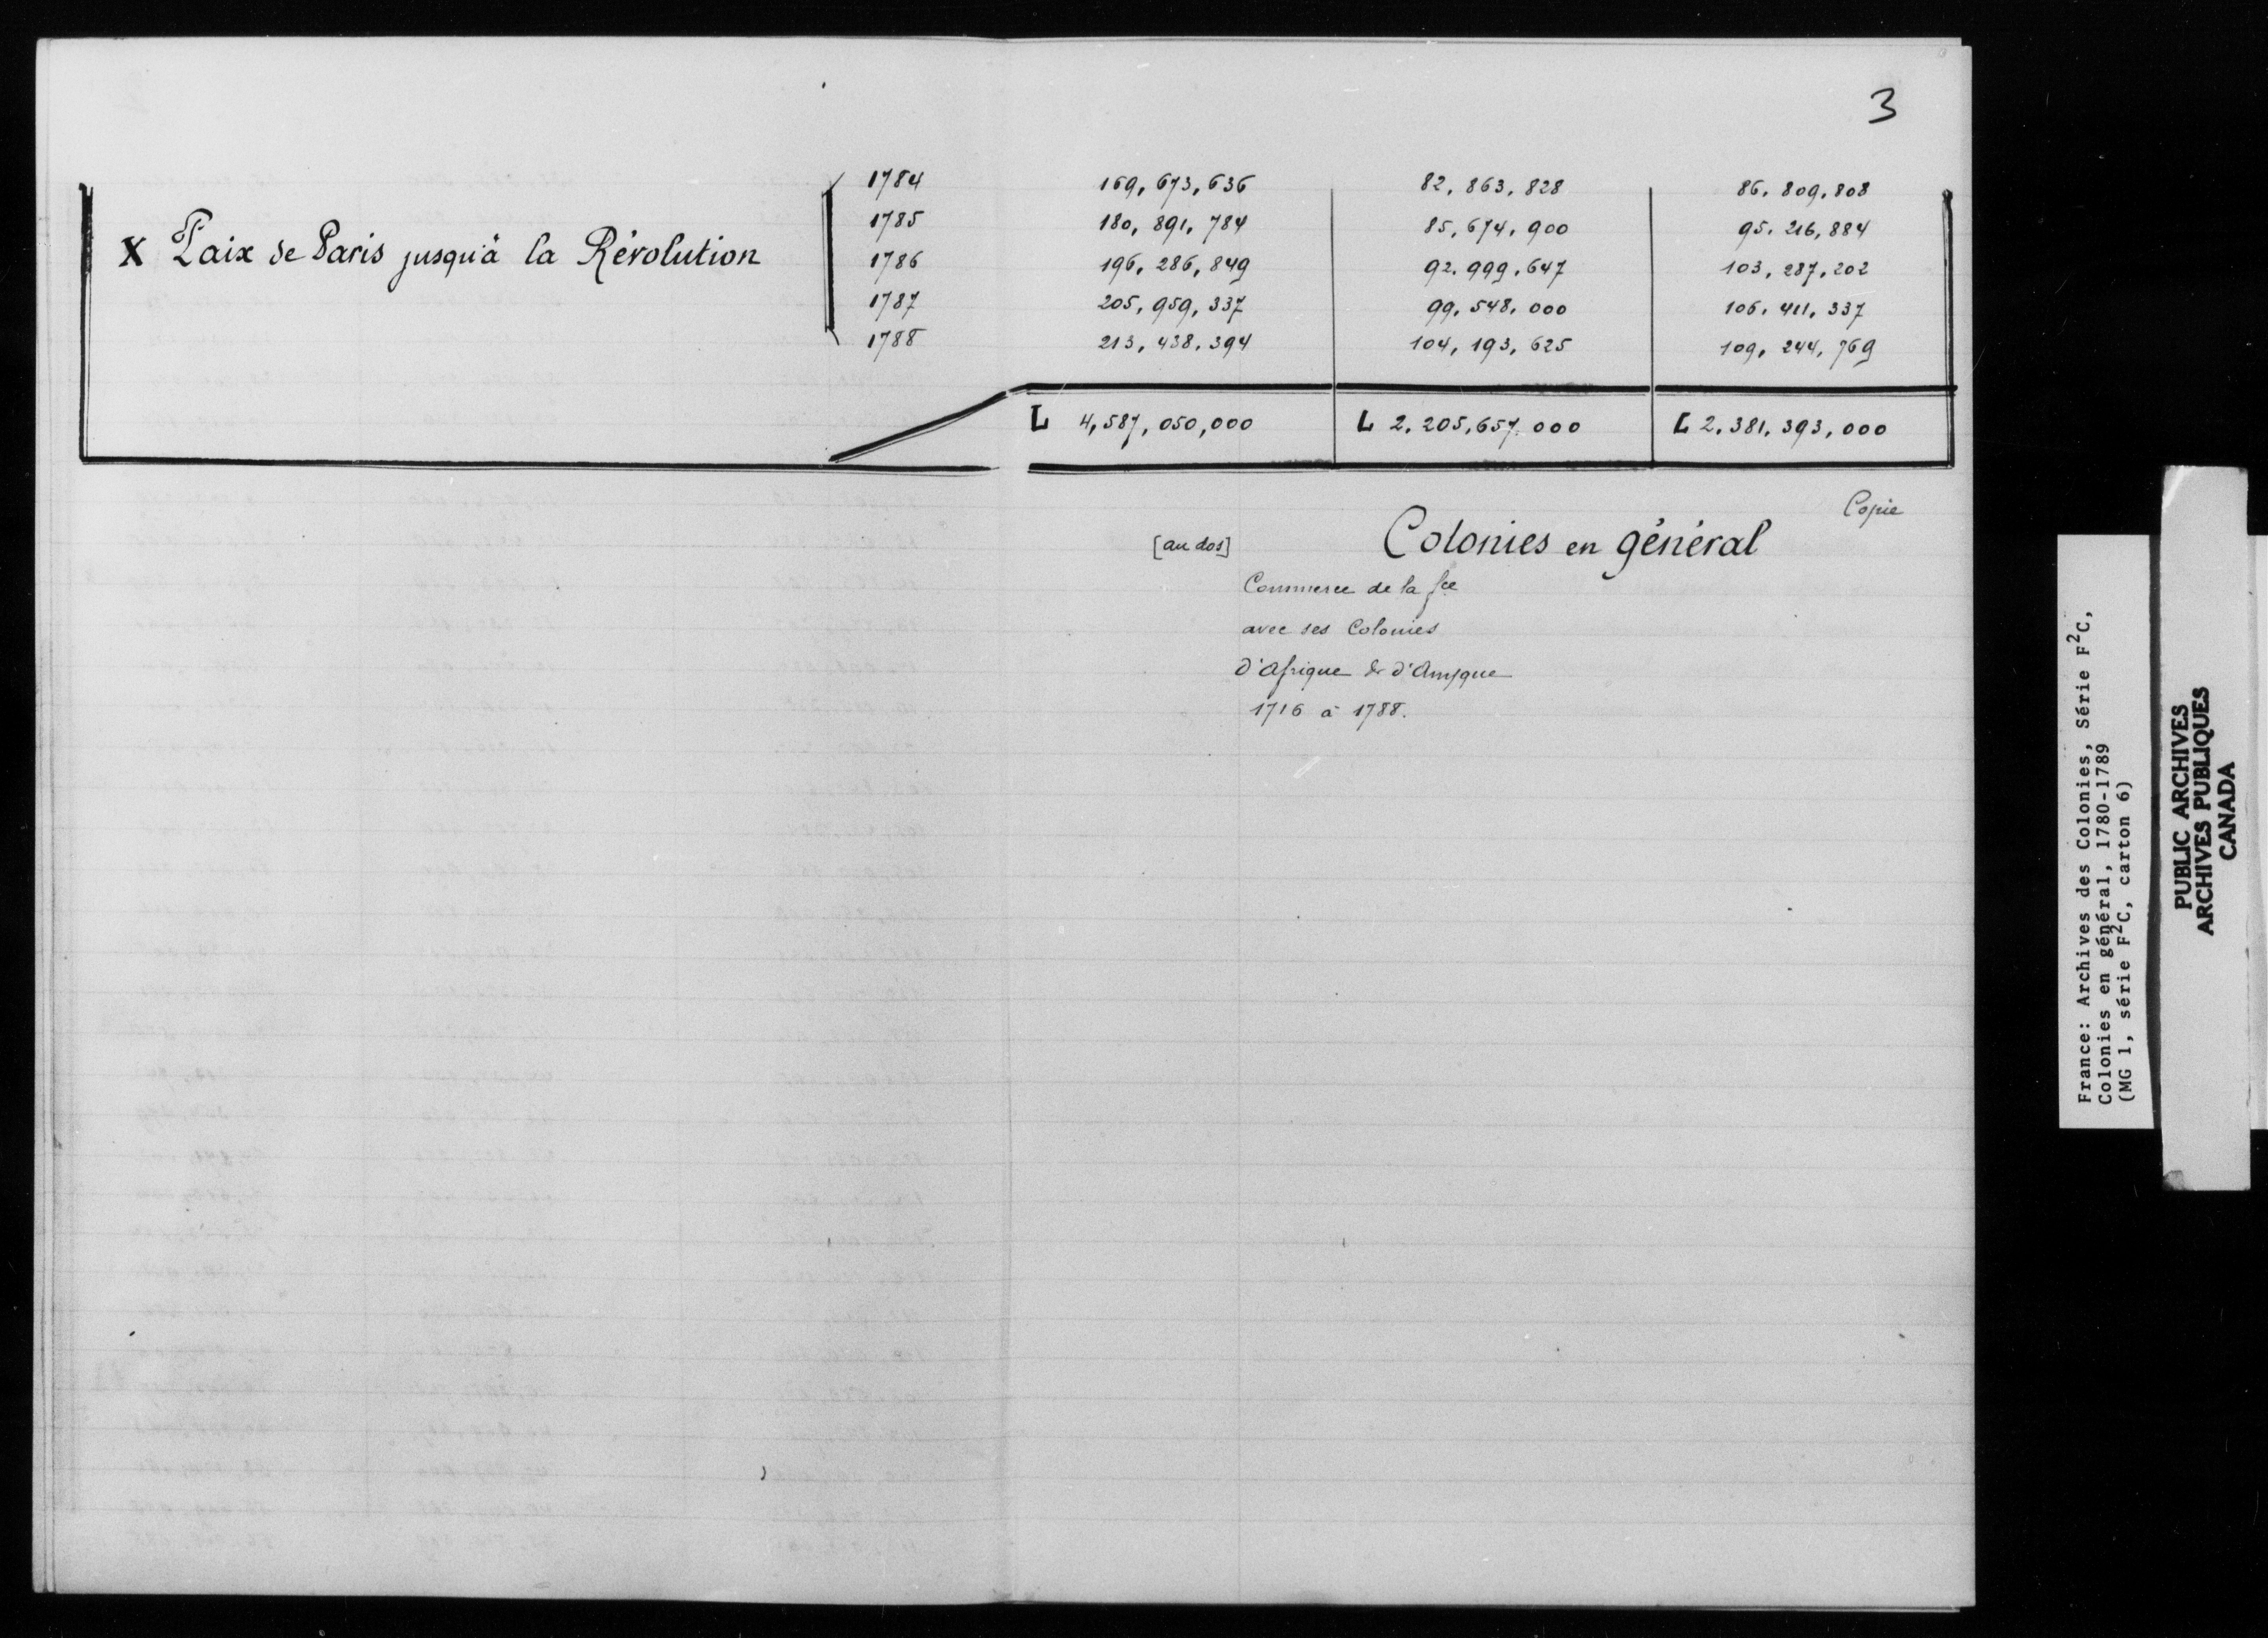 3
1784 169,673,636 82,863,828 86.809.808
1785 180,891,784 85,674,900 95.216,884
X Paix de Paris jusqu'à la Révolution
1786 196,286,849 92.999.647 103,287,202
1787 205,959,337 99.548.000 106.411.337
1788 213,438.394 104,193,625 109,244,769
L 4,587,050,000 L 2.205,657.000 L 2.381.393,000
Copie
[au dos] Colonies en général
Commerce de la fce
avec ses Colonies
d'Afrique & d'Amque
1716 à 1788.
France: Archives des Colonies, Série F²C,
Colonies en général, 1780-1789
(MG 1, série F²C, carton 6)
PUBLIC ARCHIVES
ARCHIVES PUBLIQUES
CANADA